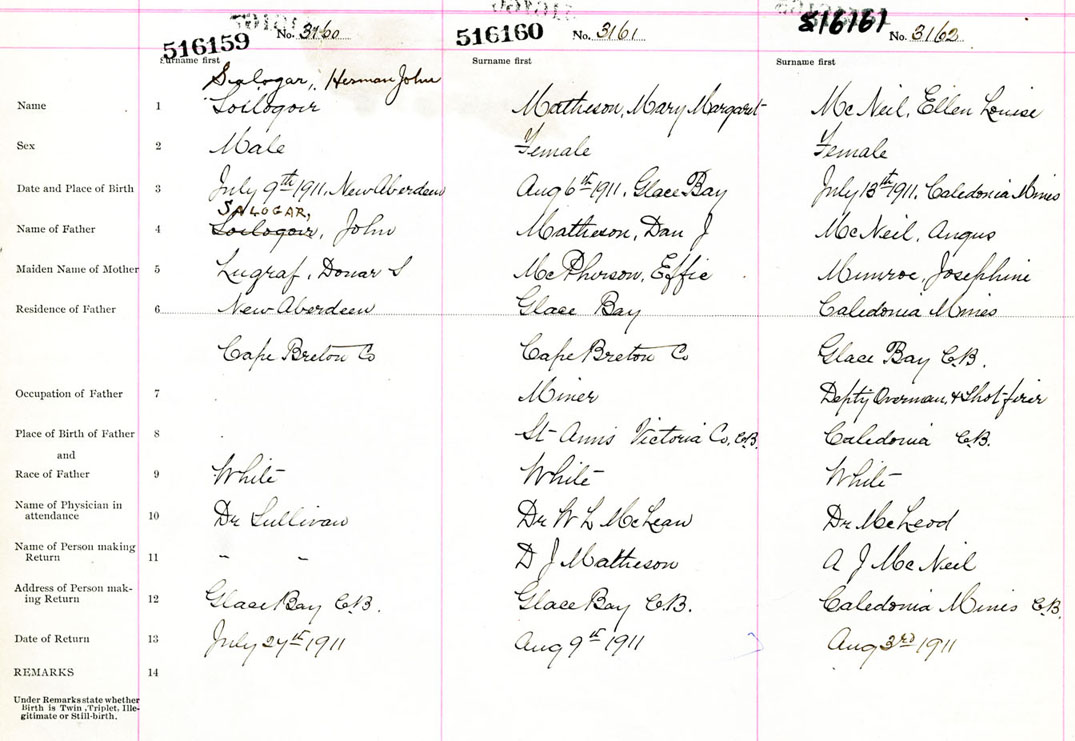 516159 No. 3160 516160 No. 3161 516161 No. 3162
Surname first Surname first Surname first
Salogar, Herman John
Name 1 Soilogoir Matheson, Mary Margaret McNeil, Ellen Louise
Sex 2 Male Female Female
Date and Place of Birth 3 July 9th 1911, New Aberdeen Aug 6th 1911, Glace Bay July 13th 1911, Caledonia Mines
SALOGAR,
Name of Father 4 Soilogoir, John Matheson, Dan J McNeil, Angus
Maiden Name of Mother 5 Lugraf, Donar S McPherson, Effie Munroe, Josephine
Residence of Father 6 New Aberdeen Glace Bay Caledonia Mines
Cape Breton Co Cape Breton Co Glace Bay C.B.
Occupation of Father 7 Miner Depty Overman, & Shot-firer
Place of Birth of Father 8 St Anns Victoria Co, C.B. Caledonia C.B.
and
Race of Father 9 White White White
Name of Physician in
attendance 10 Dr Sullivan Dr W L McLean Dr McLeod
Name of Person making
Return 11 " " D J Matheson A J McNeil
Address of Person mak-
ing Return 12 Glace Bay C.B. Glace Bay C.B. Caledonia Mines C.B.
Date of Return 13 July 27th 1911 Aug 9th 1911 Aug 3rd 1911
REMARKS 14
Under Remarks state whether
Birth is Twin, Triplet, Ille-
gitimate or Still-birth.